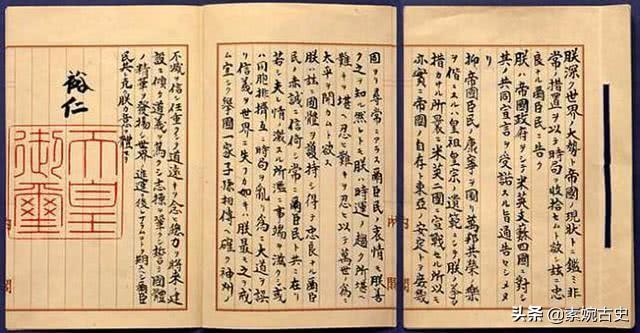 朕深ク世界ノ大勢ト帝國ノ現狀トニ鑑ミ非
常ノ措置ヲ以テ時局ヲ收拾セムト欲シ茲ニ忠
良ナル爾臣民ニ告ク
朕ハ帝國政府ヲシテ米英支蘇四國ニ對シ
其ノ共同宣言ヲ受諾スル旨通告セシメタ
リ
抑帝國臣民ノ康寧ヲ圖リ萬邦共榮ノ樂
ヲ偕ニスルハ皇祖皇宗ノ遺範ニシテ朕ノ拳々
措カサル所曩ニ米英二國ニ宣戰セル所以モ
亦實ニ帝國ノ自存ト東亞ノ安定トヲ庶幾
固ヨリ尋常ニアラス爾臣民ノ衷情モ朕善
ク之ヲ知ル然レトモ朕ハ時運ノ趨ク所堪ヘ
難キヲ堪ヘ忍ヒ難キヲ忍ヒ以テ萬世ノ爲ニ
太平ヲ開カムト欲ス
朕ハ茲ニ國體ヲ護持シ得テ忠良ナル爾臣
民ノ赤誠ニ信倚シ常ニ爾臣民ト共ニ在リ
若シ夫レ情ノ激スル所濫ニ事端ヲ滋クシ或
ハ同胞排擠互ニ時局ヲ亂リ爲ニ大道ヲ誤
リ信義ヲ世界ニ失フカ如キハ朕最モ之ヲ戒
ム宜シク擧國一家子孫相傳ヘ確ク神州ノ
不滅ヲ信シ任重クシテ道遠キヲ念ヒ總力ヲ將來ノ建
設ニ傾ケ道義ヲ篤クシ志操ヲ鞏クシ誓テ國體
ノ精華ヲ發揚シ世界ノ進運ニ後レサラムコトヲ期スヘシ爾臣
民其レ克ク朕カ意ヲ體セヨ
裕仁
天皇
御璽
頭条 @素婉古史